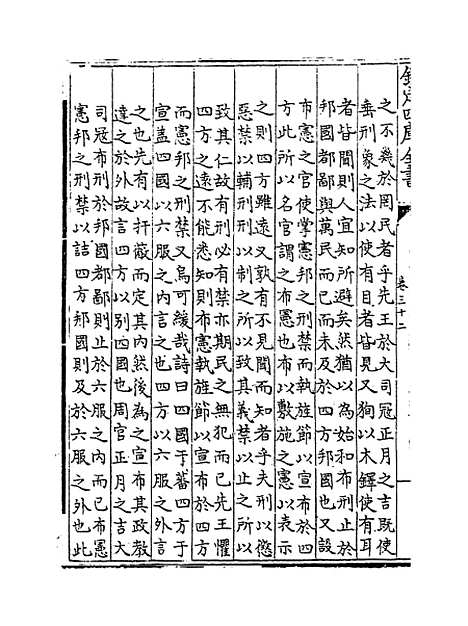 欽定四庫全書
卷三十二
之不幾於罔民者乎先王於大司冦正月之吉既使
垂刑象之法以使有目者皆見又狥以木鐸使有耳
者皆聞則人宜知所避矣然猶以為始和布刑止於
邦國都鄙與萬民而已而未及於四方邦國也又設
布憲之官使掌憲邦之刑禁而執旌節以宣布於四
方此所以名官謂之布憲也布以敷施之憲以表示
之則四方雖遠又孰有不見聞而知者乎夫刑以懲
惡禁以輔刑刑以制之所以致其義禁以止之所以
致其仁故有刑必有禁亦期民之無犯而已先王懼
四方之遠不能悉知則布憲執旌節以宣布於四方
而憲邦之刑禁又烏可緩哉詩曰四國于蕃四方于
宣盖四國以六服之內言之也四方以六服之外言
之也先有以扞蔽而定其內然後為之宣布其政教
達之於外故言四方以別四國也周官正月之吉大
司冦布刑於邦國都鄙則止於六服之內而已布憲
憲邦之刑禁以詰四方邦國則及於六服之外也此